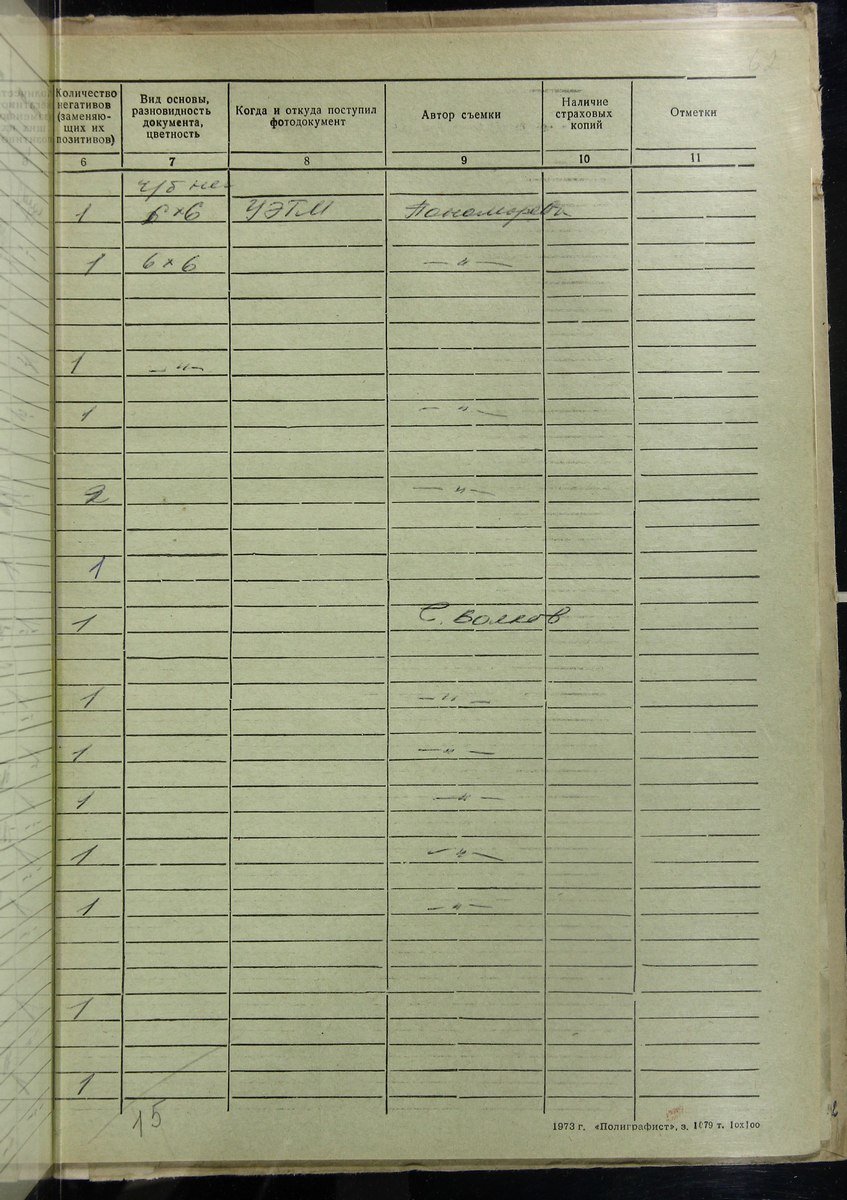 62
Количество негативов (заменяю-щих их позитивов)
Вид основы, разновидность документа, цветность
Когда и откуда поступил фотодокумент
Автор съемки
Наличие страховых копий
Отметки
6 7 8 9 10 11
ч/б нег
1 6×6 УЭТМ
1 6×6 —"—
1 —"—
1 —"—
2 —"—
1
1 С. Волков
1 —"—
1 —"—
1 —"—
1 —"—
1 —"—
1
1
15
1973 г. «Полиграфист», з. 1679 т. 10х100